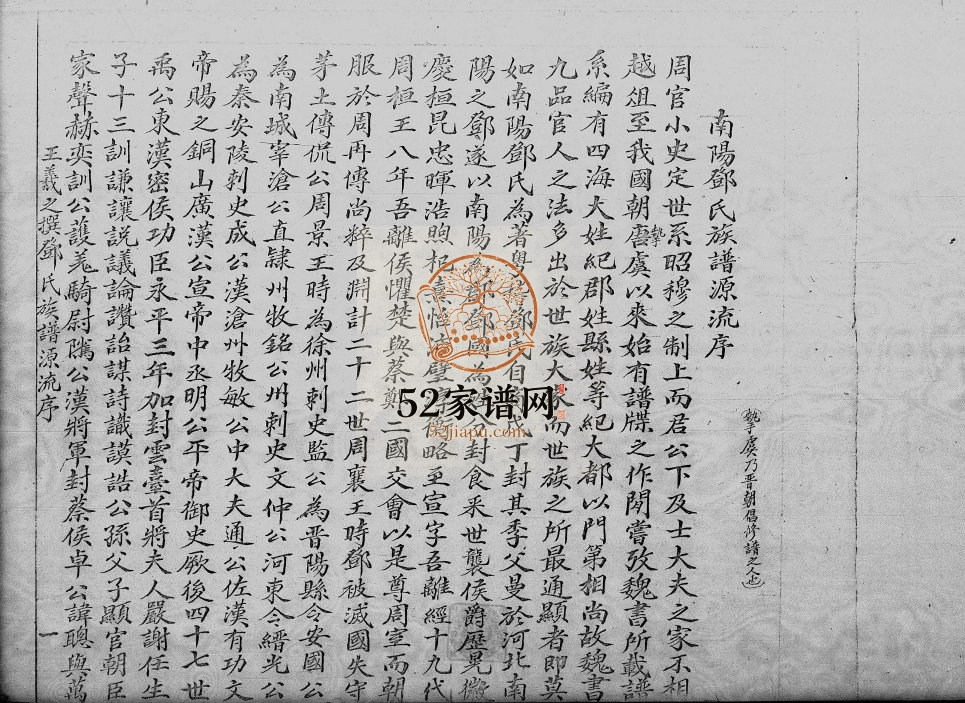 南陽鄧氏族譜源流序
摯虞乃晉朝倡修譜之人也
周官小史定世系昭穆之制上而君公下及士大夫之家不相
越俎至我國朝唐摯虞以來始有譜牒之作閱嘗攷魏書所載譜
系編有四海大姓紀郡姓縣姓等紀大都以門第相尚故魏書
九品官人之法多出於世族大家而世族之所最通顯者即莫
如南陽鄧氏為著粵稽鄧氏自武丁封其季父曼於河北南
陽之鄧遂以南陽鄧國為封食采世襲侯爵歷晃微
慶桓昆忠暉浩煦杞熹怡略至宣字吾離經十九代
周桓王八年吾離侯懼楚與蔡鄭二國交會以是尊周室而朝
服於周再傳尚粹及淵計二十二世周襄王時鄧被滅國失守
茅土傳侃公周景王時為徐州刺史監公為晉陽縣令安國公
為南城宰滄公直隷州牧銘公州刺史文仲公河東令縉光公
為秦安陵刺史成公漢滄州牧敏公中大夫通公佐漢有功文
帝賜之銅山廣漢公宣帝中丞明公平帝御史厥後四十七世
禹公東漢密侯功臣永平三年加封雲臺首將夫人嚴謝任生
子十三訓謙讓説議論讚詒謀詩識謨誥公孫父子顯官朝臣
家聲赫奕訓公護羌騎尉隲公漢將軍封蔡侯卓公諱聰與萬
王羲之撰鄧氏族譜源流序
一
52家譜网
jiapu.com